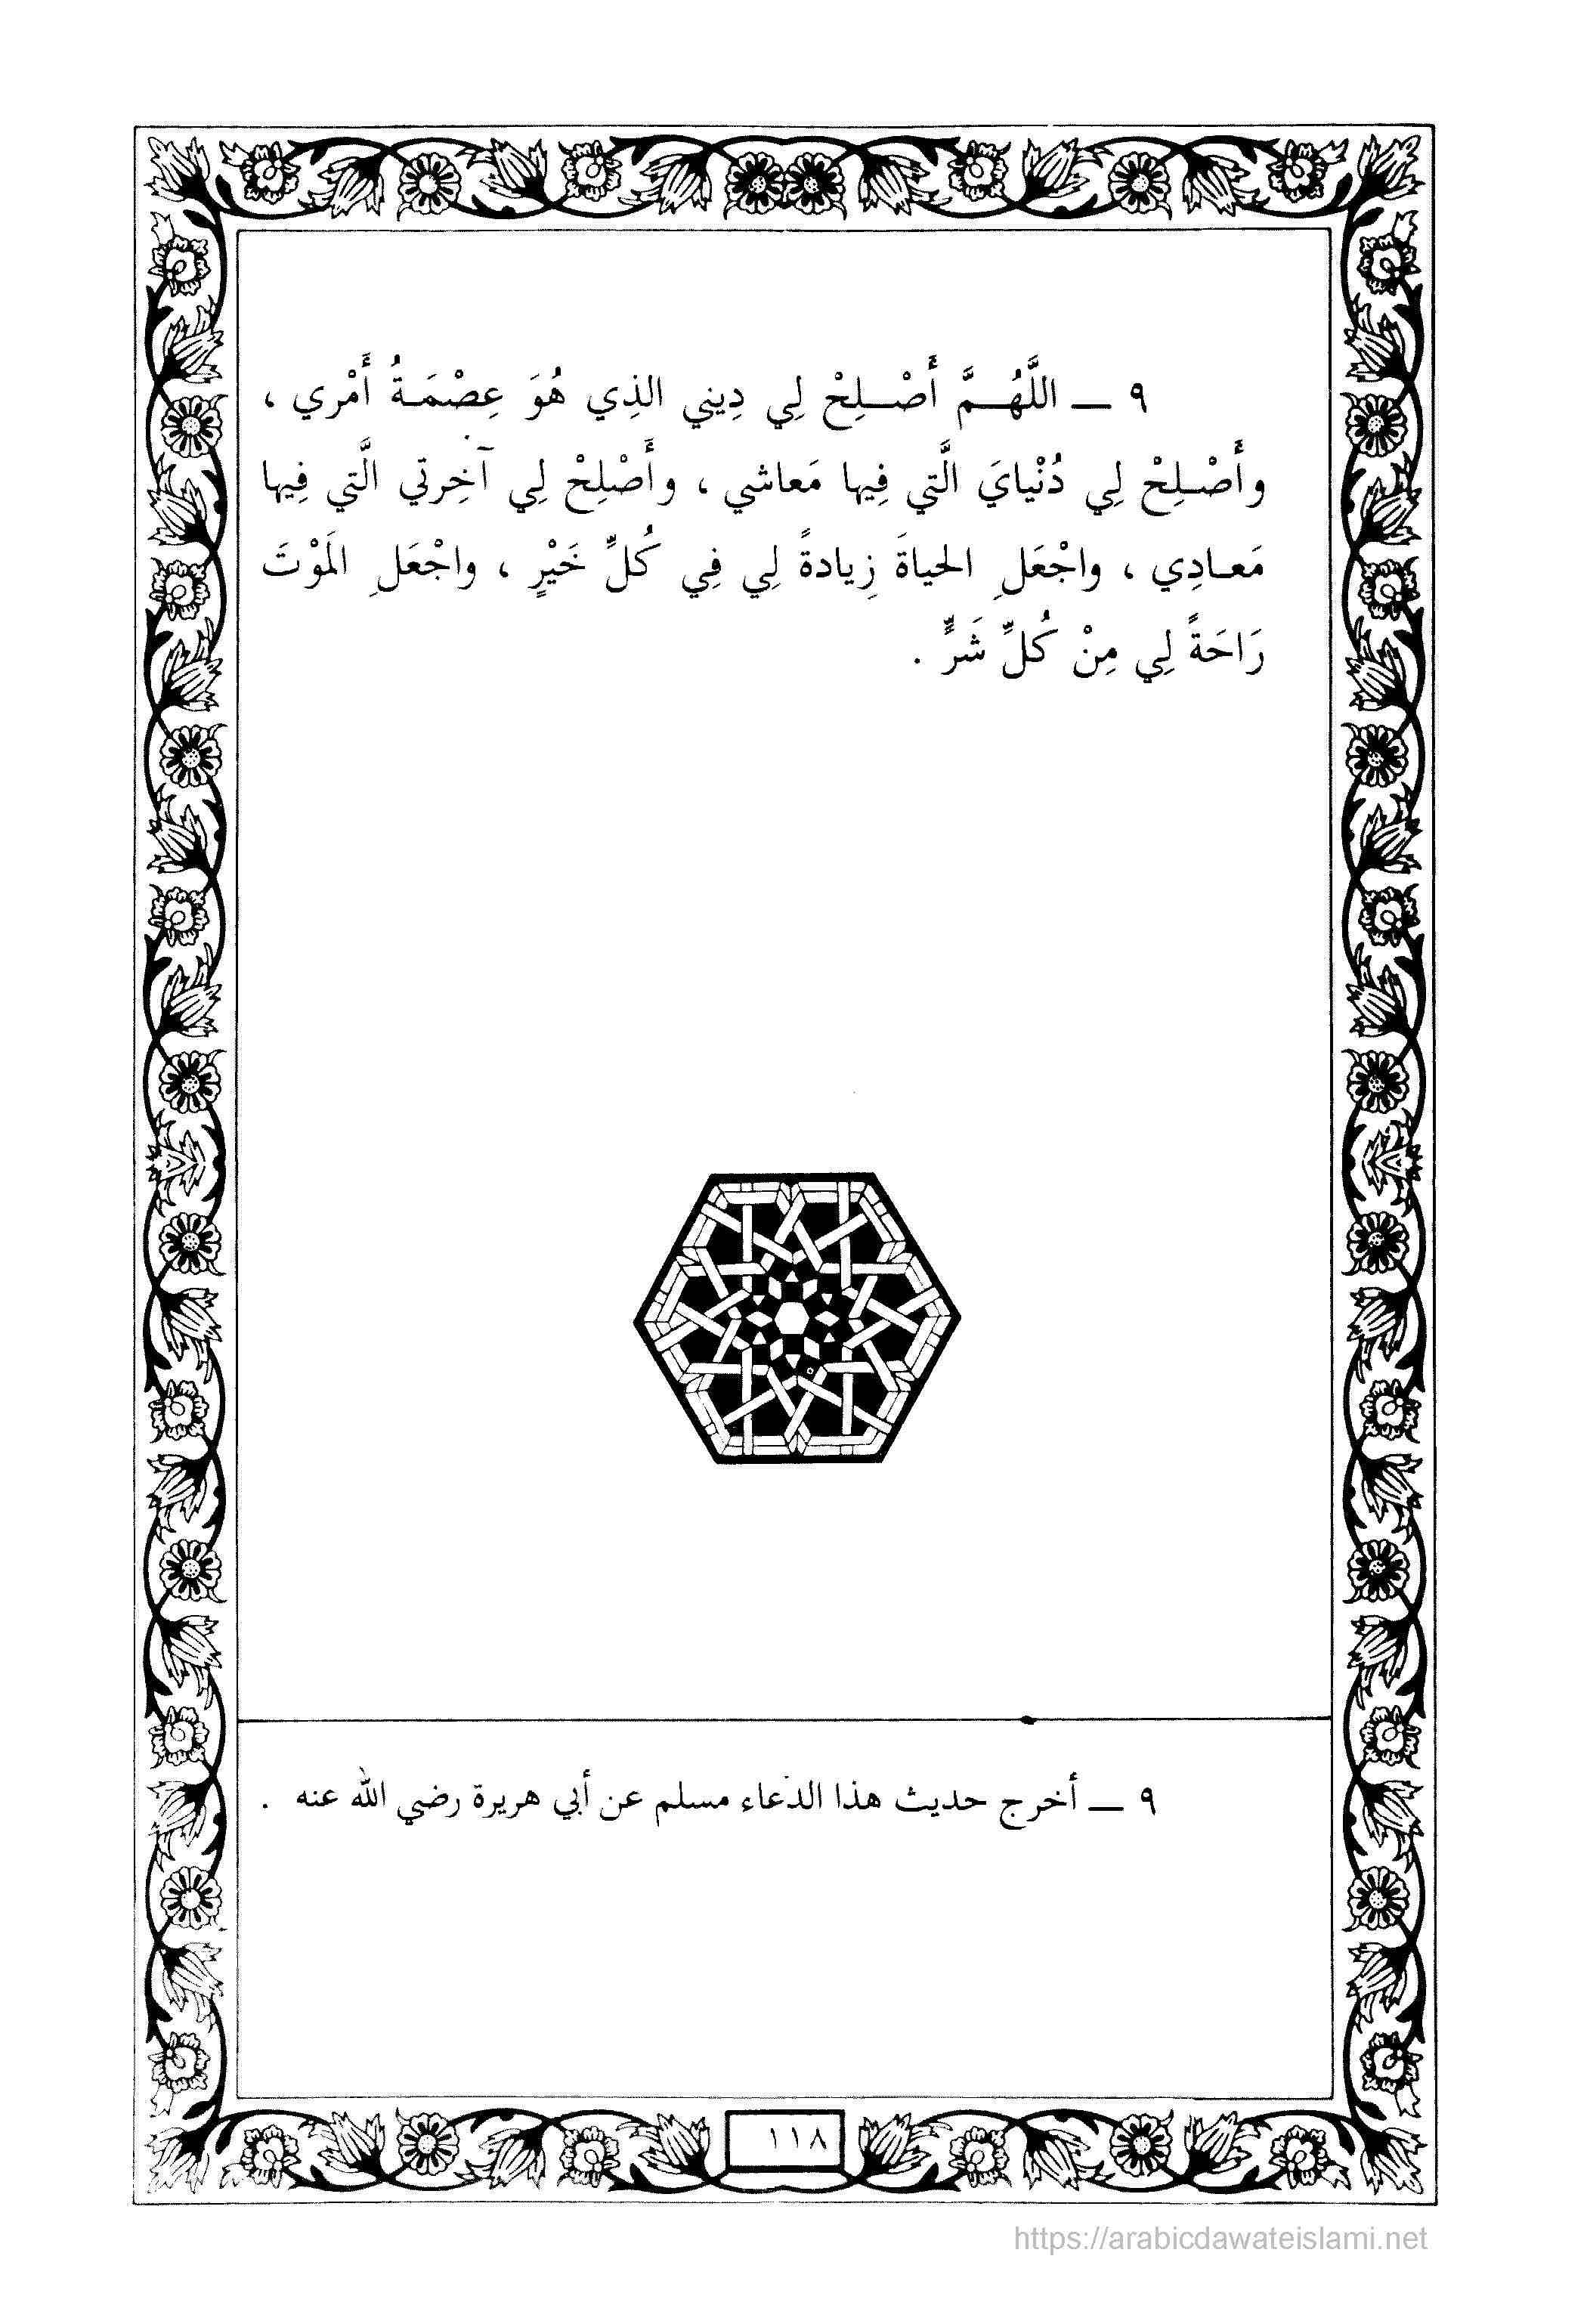 ٩ ــ اللَّهُمَّ أَصْلِحْ لِي دِيني الذِي هُوَ عِصْمَةُ أَمْري ،
وأَصْلِحْ لِي دُنْيايَ الَّتي فِيها مَعاشي ، وأَصْلِحْ لِي آخِرتي الَّتي فِيها
مَعادِي ، واجْعَلِ الحياةَ زِيادةً لِي فِي كُلِّ خَيْرٍ ، واجْعَلِ المَوْتَ
رَاحَةً لِي مِنْ كُلِّ شَرٍّ .
٩ ــ أخرج حديث هذا الدعاء مسلم عن أبي هريرة رضي الله عنه .
١١٨
https://arabicdawateislami.net